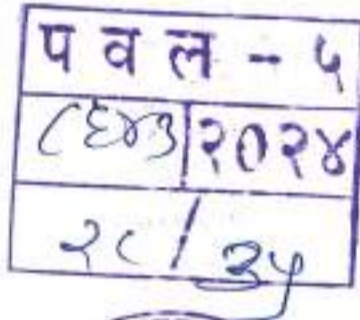 प व ल - ५
८६४३ २०२४
२८ / ३५